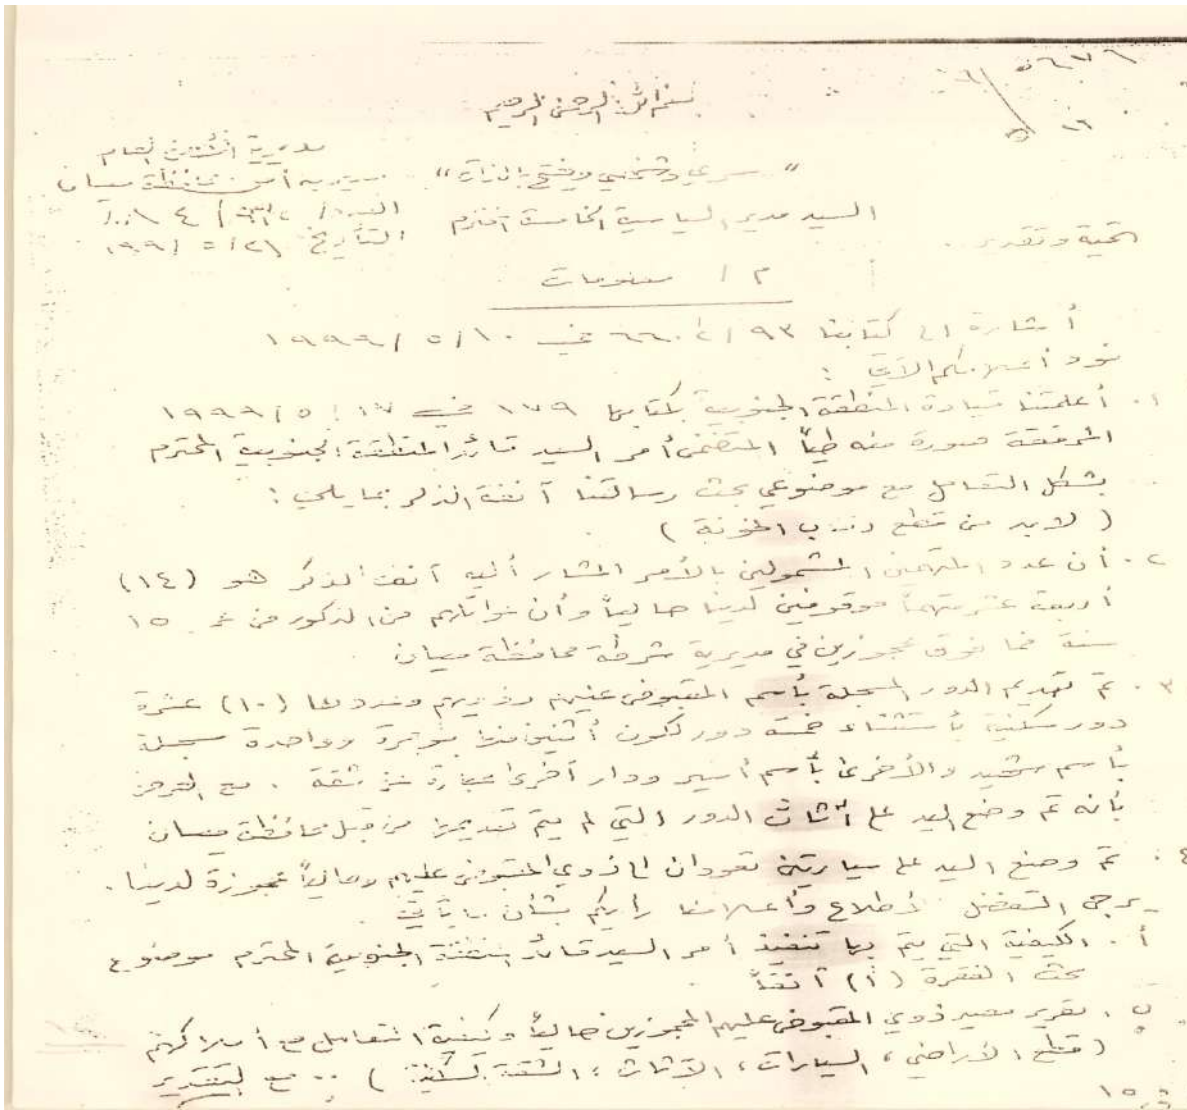 ٥٦٧٦
١٦
بسم الله الرحمن الرحيم
مديرية الأمن العامة
مديرية أمن محافظة ميسان
التأريخ ٢١/٥/١٩٩٩
" سري وشخصي ويفتح بالذات "
السيد مدير السياسية الخامسة المحترم
تحية وتقدير ..
م / معلومات
أشارة الى كتابنا ٩٣/ في ١٠/٥/١٩٩٩
نود أعلامكم الآتي :
١. أعلمتنا قيادة المنطقة الجنوبية بكتابها ١٧٩ في ١٧/٥/١٩٩٩
المرفقة صورة منه طياً المتضمن أمر السيد قائد المنطقة الجنوبية المحترم
بشكل التعامل مع موضوعي بحث رسالتنا آنفة الذكر بما يلي :
( لا بد من قطع دابر الخونة )
٢. أن عدد المتهمين المشمولين بالأمر المشار أليه آنف الذكر هو (١٤)
أربعة عشر متهماً موقوفين لدينا حالياً وأن من الذكور من ١٥
سنة فما فوق محجوزين في مديرية شرطة محافظة ميسان
٣. تم تهديم الدور المسجلة بأسم المقبوض عليهم وذويهم وعددها (١٠) عشرة
دور سكنية بأستثناء خمسة دور لكون أثنين منها مؤجرة وواحدة مسجلة
بأسم شهيد والأخرى بأسم أسير ودار أخرى عبارة عن شقة . مع العرض
بأنه تم وضع اليد على أثاث الدور التي لم يتم تهديمها من قبل محافظة ميسان
٤. تم وضع اليد على سيارتين تعودان الى ذوي المقبوض عليهم وحالياً محجوزة لدينا .
يرجى التفضل بالأطلاع وأعلامنا رأيكم بشأن ما يأتي .
أ. الكيفية التي يتم بها تنفيذ أمر السيد قائد المنطقة الجنوبية المحترم موضوع
بحث الفقرة (أ) آنفاً
ب. تقرير مصير ذوي المقبوض عليهم المحجوزين حالياً وكيفية التعامل مع أملاكهم
( قطع الأراضي ، السيارات ، الأثاث ، الشقة السكنية ) .. مع التقدير